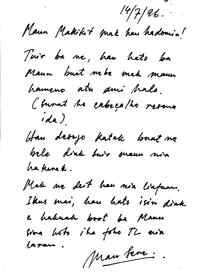 14/7/96.
Maun Makikit mak hau hadomin!
Tuir ba ne, hau hato ba
Maun buat nebe mak maun
hameno atu ami halo.
(Surat ho cabeça/ho resma
ida).
Hau desejo katak buat ne
bele diak buin maun nia
hakarak.
Mak ne deit hau nia liafuan.
Ikus mai, hau hato isin diak
e haksoak boot ba Maun
sira hotu iha foho TL nia
laran.